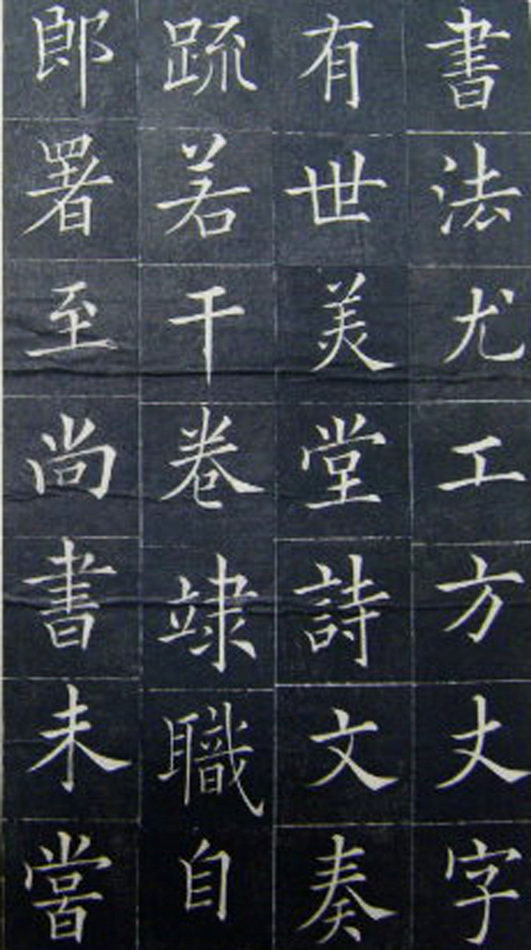 書法尤工方丈字
有世美堂詩文奏
䟽若干卷隷職自
郎署至尚書未嘗